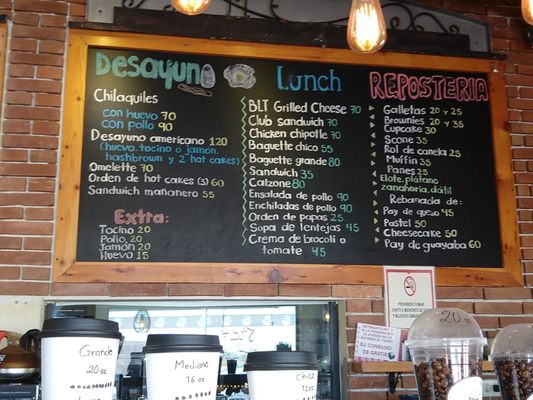 Desayuno
Chilaquiles
con huevo 70
con pollo 90
Desayuno americano 120
(huevo, tocino o jamón,
hashbrown y 2 hot cakes)
Omelette 70
Orden de hot cakes (3) 60
Sandwich mañanero 55
Extra:
Tocino 20
Pollo 20
Jamón 20
Huevo 15
Lunch
BLT Grilled Cheese 70
Club sandwich 70
Chicken chipotle 70
Baguette chico 55
Baguette grande 80
Sandwich 35
Calzone 80
Ensalada de pollo 90
Enchiladas de pollo 90
Orden de papas 25
Sopa de lentejas 45
Crema de brocoli o
tomate 45
REPOSTERIA
Galletas 20 y 25
Brownies 20 y 35
Cupcake 30
Scone 35
Rol de canela 25
Muffin 35
Panes 25
Elote, plátano
zanahoria, dátil
Rebanada de:
Pay de queso 45
Pastel 50
Cheesecake 50
Pay de guayaba 60
PROHIBIDO
FUMAR
GRATIS
Grande
20 oz
Mediano
16 oz
Chico
12 oz
20 oz